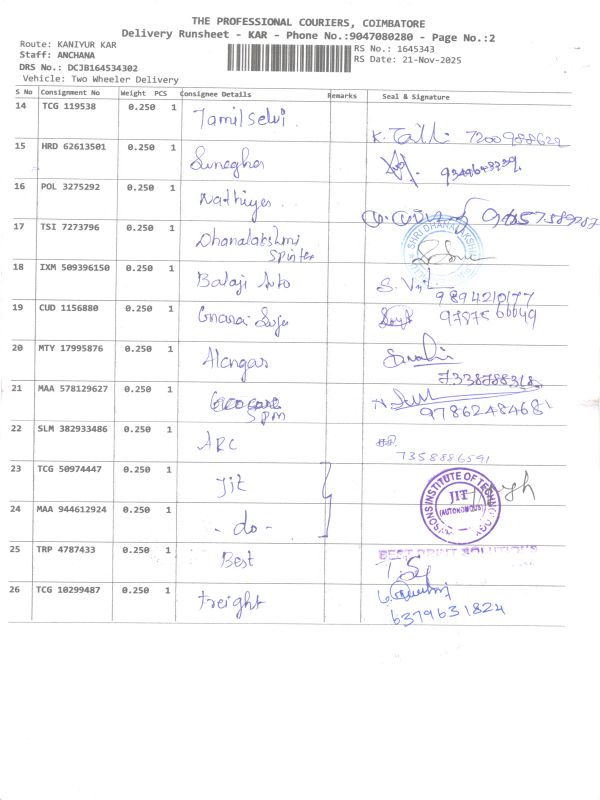 THE PROFESSIONAL COURIERS, COIMBATORE
Delivery Runsheet - KAR - Phone No.:9047080280 - Page No.:2
Route: KANIYUR KAR RS No.: 1645343
Staff: ANCHANA RS Date: 21-Nov-2025
DRS No.: DCJB164534302
Vehicle: Two Wheeler Delivery
S No Consignment No Weight PCS Consignee Details Remarks Seal & Signature
14 TCG 119538 0.250 1 Tamil Selvi. 7200988622
15 HRD 62613501 0.250 1
16 POL 3275292 0.250 1 Nathiya
17 TSI 7273796 0.250 1 Dhanalakshmi
18 IXM 509396150 0.250 1 Balaji Auto
9894210177
19 CUD 1156880 0.250 1
20 MTY 17995876 0.250 1
21 MAA 578129627 0.250 1 SPM
97862484681
22 SLM 382933486 0.250 1 ARC
7358886591
23 TCG 50974447 0.250 1 Jit
24 MAA 944612924 0.250 1 - do - JIT (AUTONOMOUS)
25 TRP 4787433 0.250 1 Best BEST PRINT SOLUTIONS
26 TCG 10299487 0.250 1 freight
6379631824